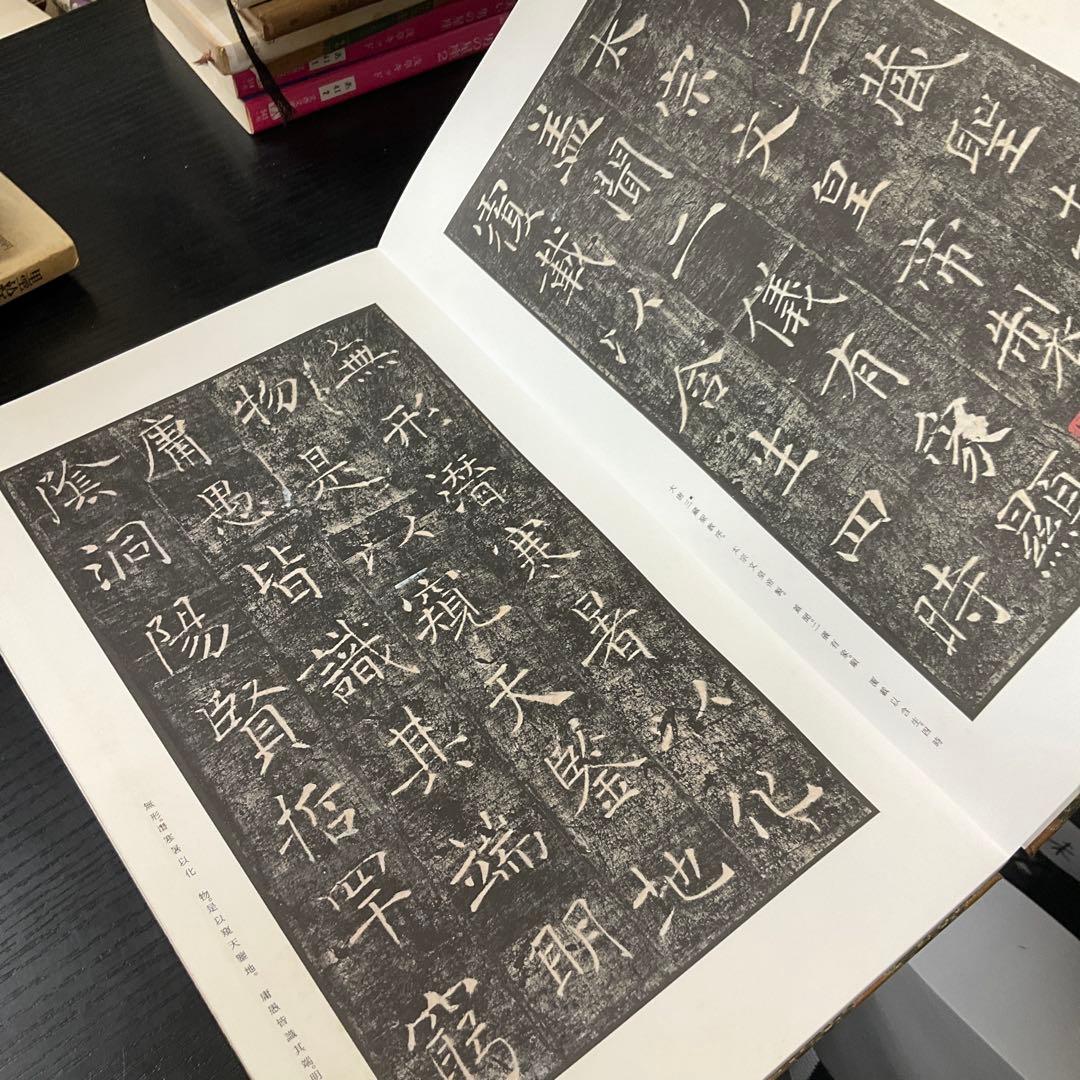 三藏聖
太宗文皇帝製
蓋聞二儀有象顯
覆載以含生四時
無形潛寒暑以化
物是以窺天鑒地
庸愚皆識其端明
陰洞陽賢哲罕窮
大唐三藏聖教序。　太宗文皇帝製。　蓋聞。二儀有象。顯　覆載以含生。四時
無形。潛寒暑以化　物。是以窺天鑒地。　庸愚皆識其端。明